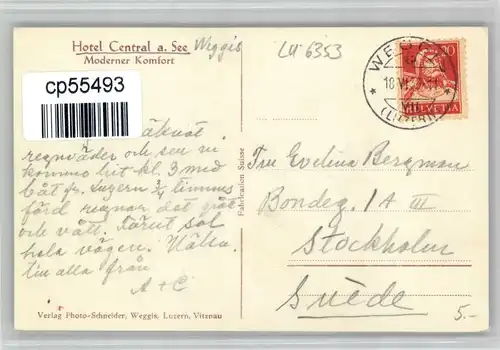 Hotel Central a. See Weggis
Moderner Komfort
Lu 6353
cp55493
WEGGIS
18.VI.
VIII
(LUZERN)
HELVETIA
regnväder och sen vi
kommo hit kl. 3 med
båt fr. Luzern 3/4 timmes
färd regnar det gjöt
och vått. Förut sol
hela vägen. Hälsa
till alla från
A + C
Fabrication Suisse
Fru Evelina Bergman
Bondeg. 1 A III
Stockholm
Suède
5.-
Verlag Photo-Schneider, Weggis, Luzern, Vitznau